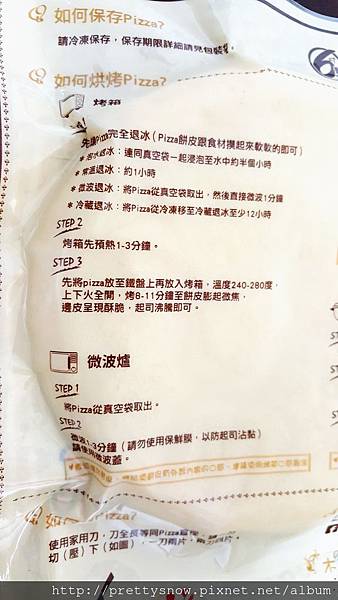 如何保存Pizza?
請冷凍保存，保存期限詳細請見包裝
如何烘烤Pizza?
烤箱
完全退冰(Pizza餅皮跟食材摸起來軟軟的即可)
＊泡水退冰：連同真空袋一起浸泡至水中約半個小時
＊常溫退冰：約1小時
＊微波退冰：將Pizza從真空袋取出，然後直接微波1分鐘
＊冷藏退冰：將Pizza從冷凍移至冷藏退冰至少12小時
STEP 2
烤箱先預熱1-3分鐘。
STEP 3
先將pizza放至鐵盤上再放入烤箱，溫度240-280度，
上下火全開，烤8-11分鐘至餅皮膨起微焦，
邊皮呈現酥脆，起司沸騰即可。
微波爐
STEP 1
將Pizza從真空袋取出。
STEP 2
微波1-3分鐘(請勿使用保鮮膜，以防起司沾黏)
請使用微波蓋。
Pizza?
使用家用刀，刀全長等同Pizza直徑
切(壓)下(如圖)，一刀兩片，兩刀四片，
http://prettysnow.pixnet.net/album